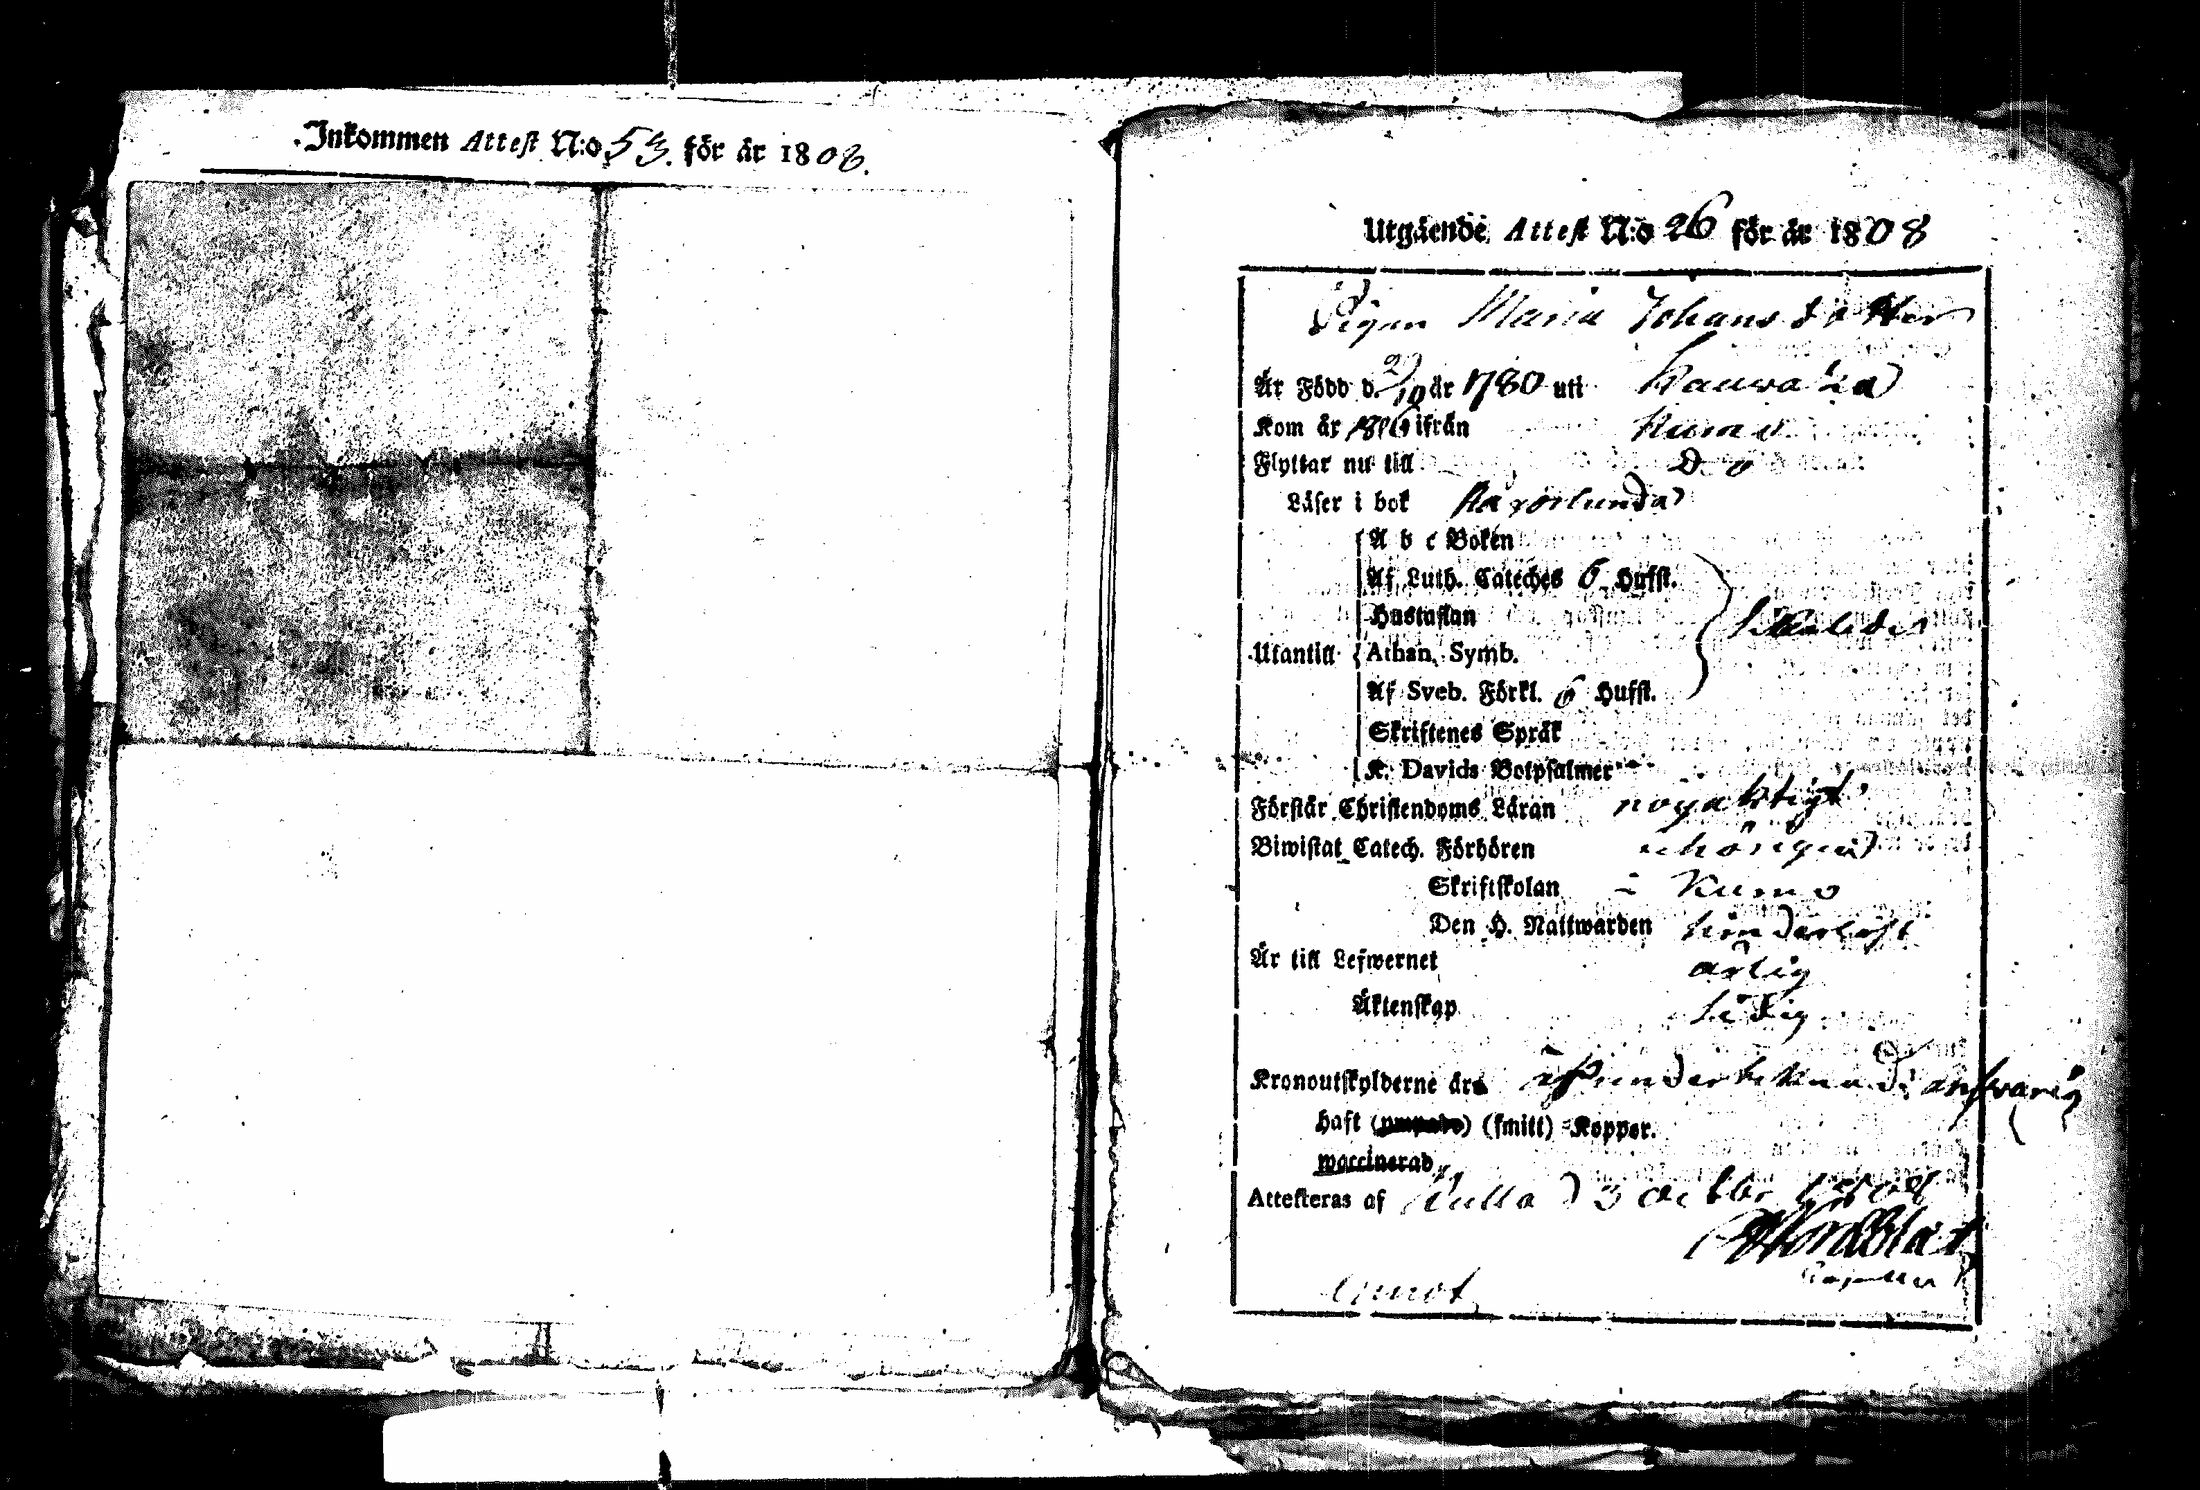 Inkommen Attest N:o 53. för år 1808.
Utgående Attest N:o 26 för år 1808
Pigan Maria Johansdotter
Är Född d. 2/10 år 1780 uti Kauvatza
Kom år 1806 ifrån Kumo
Flyttar nu till Do
Läser i bok
A b c Boken
Af Luth. Cateches 6 Hufst.
Hustaflan likaledes
Utantill Athan. Symb.
Af Sveb. Förkl. 6 Hufst.
Skriftenes Språk
K. Davids Botpsalmer
Förstår Christendoms Läran nöyaktigt
Biwistat Catech. Förhören
Skriftskolan i Kumo
Den H. Nattwarden hinderlöst
Är till Lefwernet ärlig
Äktenskap Ledig
Kronoutskylderne är underteknad answarig
haft (smitt) Koppor.
waccinerad
Attesteras af d 3 Octobr 1808
Nordblad